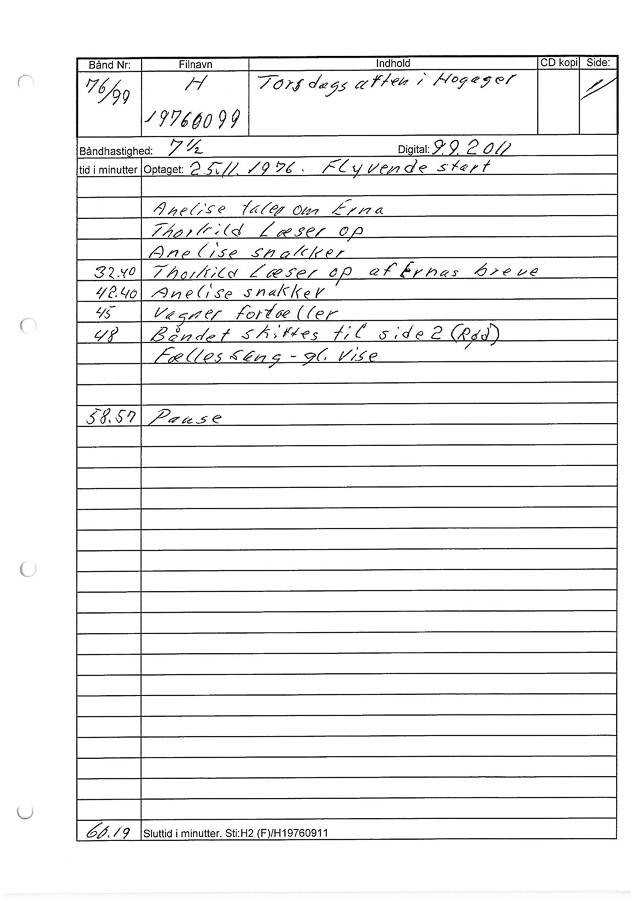 Bånd Nr: Filnavn Indhold CD kopi Side:
76/99 H Torsdagsaften i Hogager 1/
19760099
Båndhastighed: 7 1/2 Digital: 9.9.2011
tid i minutter Optaget: 25.11.1976. Flyvende start
Anelise taler om Erna
Thorkild Læser op
Anelise snakker
32.40 Thorkild Læser op af Ernas breve
42.40 Anelise snakker
45 Vagner fortæller
48 Båndet skiftes til side 2 (Rød)
Fællessang - gl. vise
58.57 Pause
60.19 Sluttid i minutter. Sti:H2 (F)/H19760911